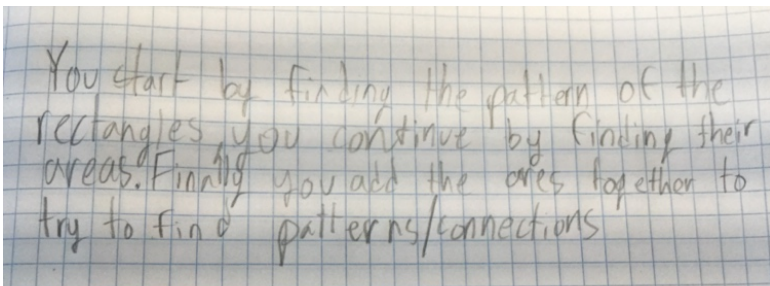 You start by finding the pattern of the
rectangles, you continue by finding their
areas. Finnaly you add the ares together to
try to find patterns/connections